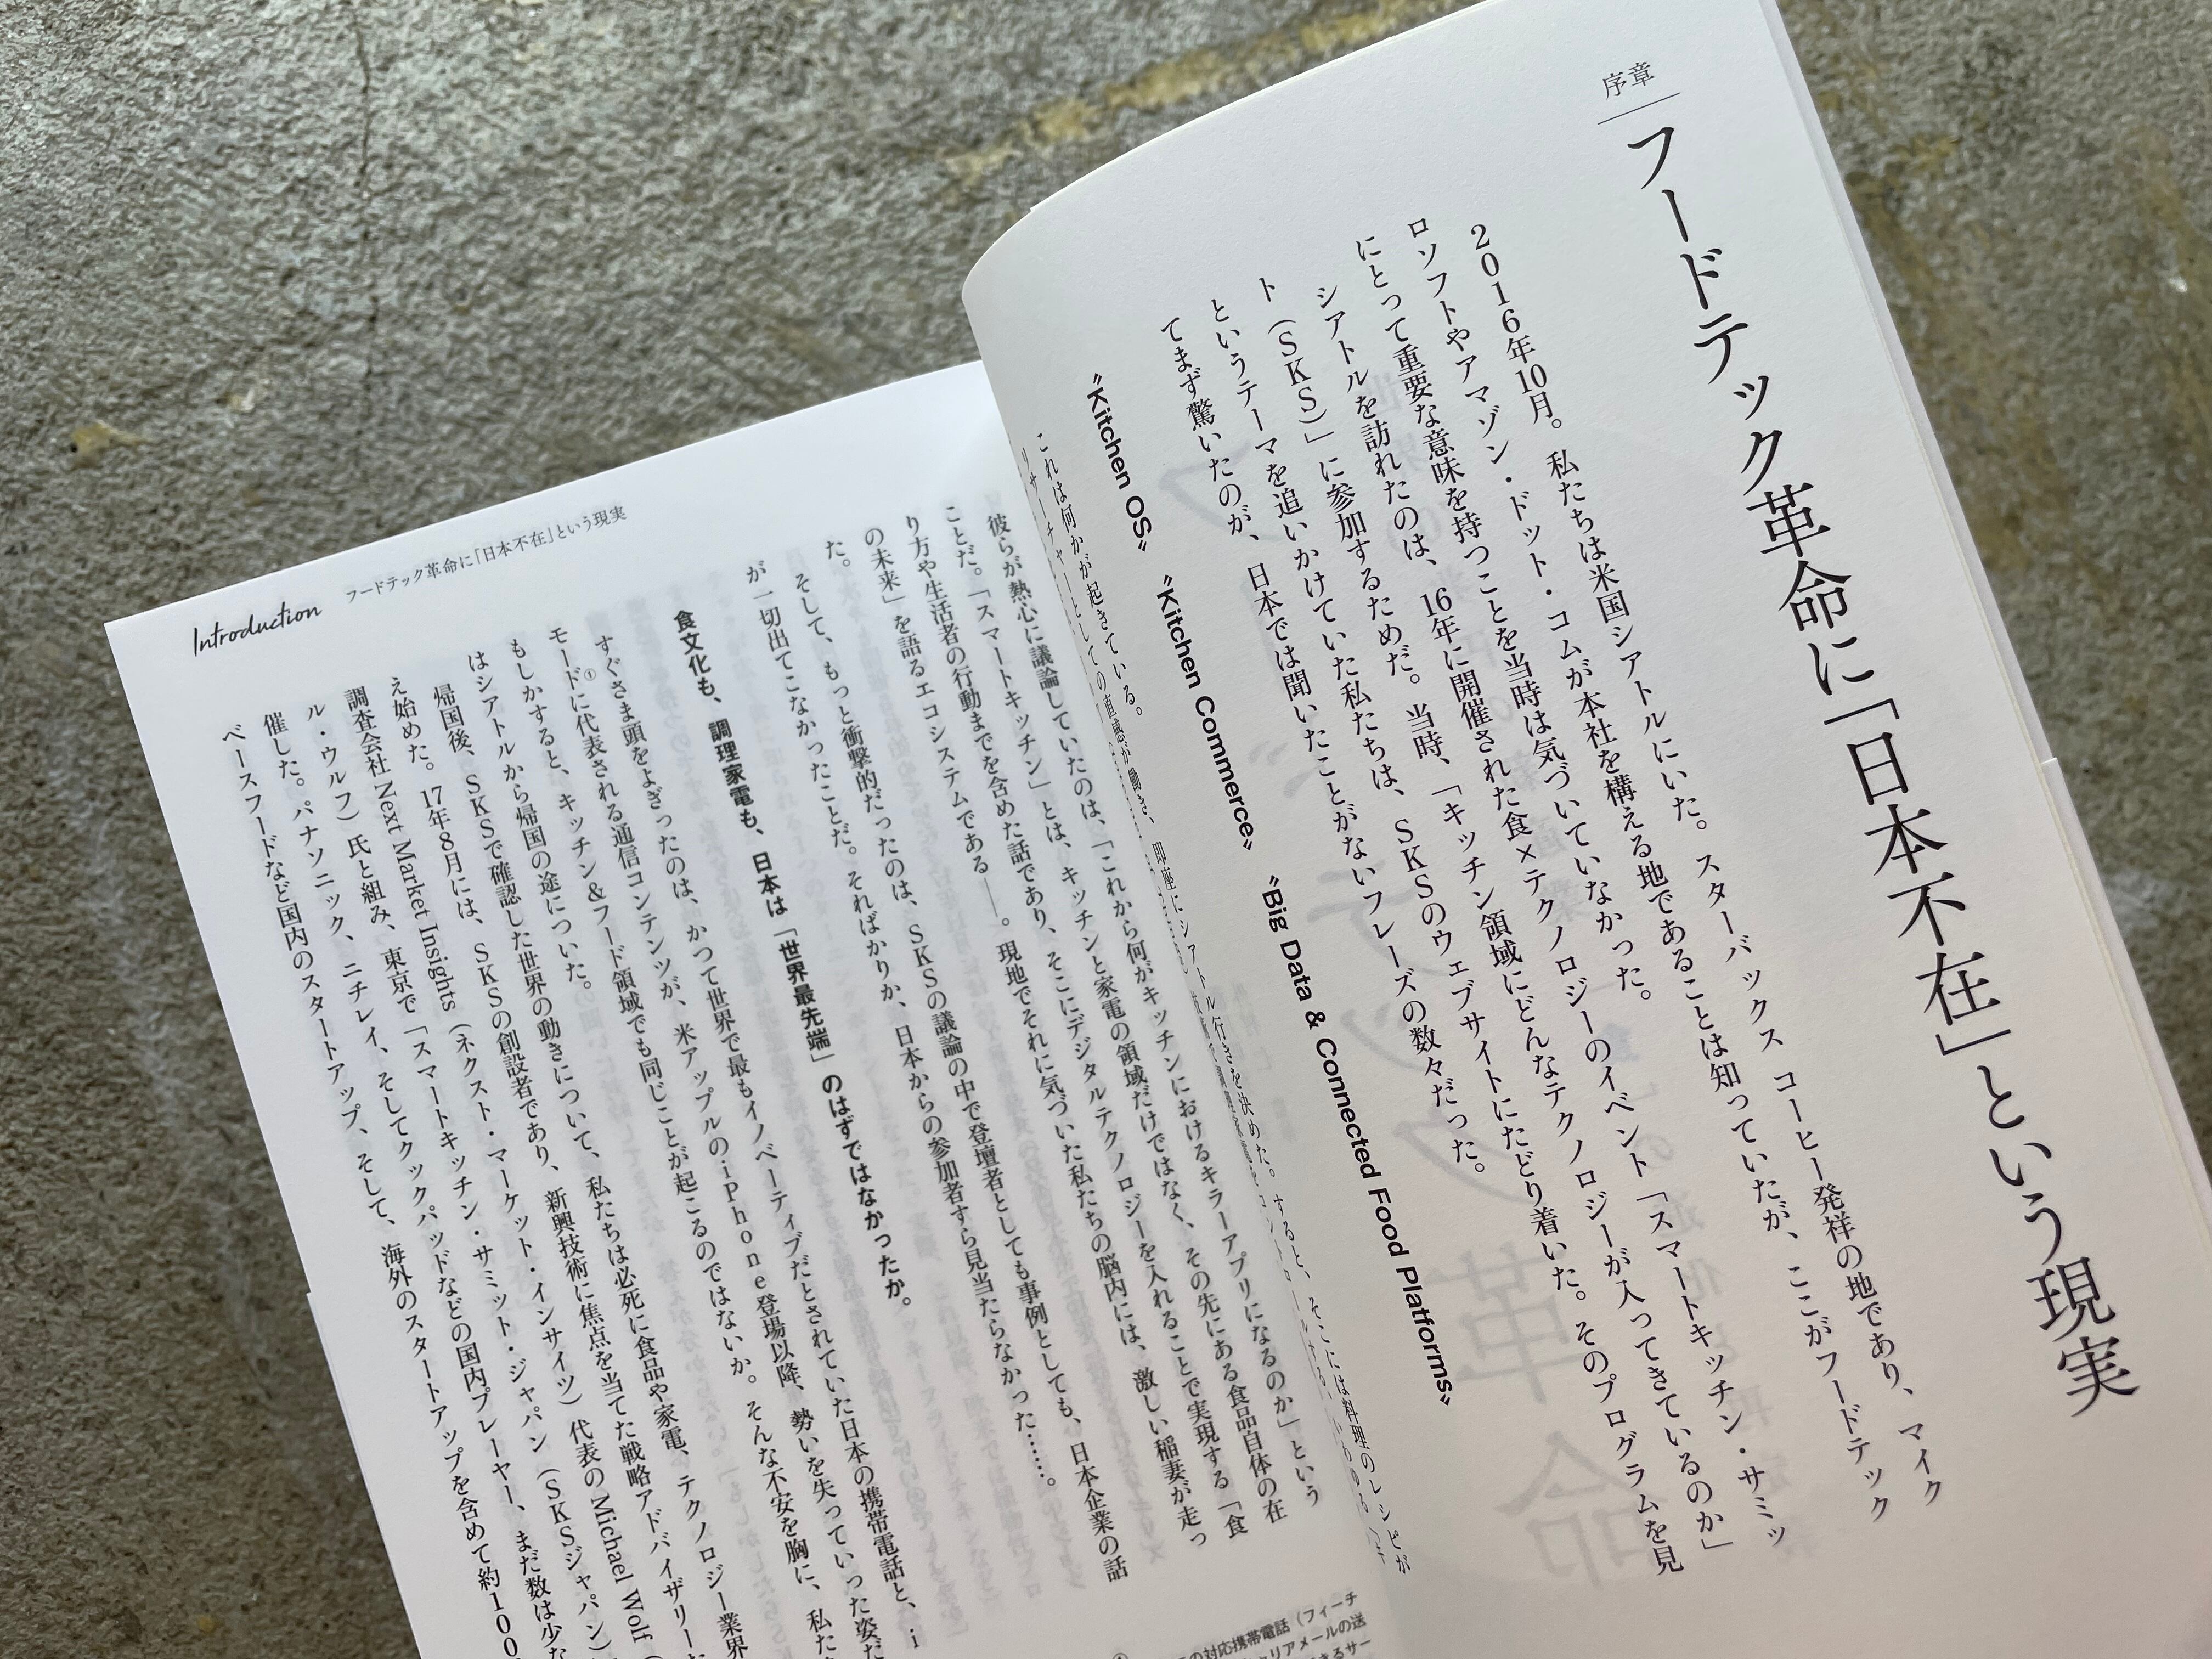 序章
フードテック革命に「日本不在」という現実
2016年10月。私たちは米国シアトルにいた。スターバックス コーヒー発祥の地であり、マイク
ロソフトやアマゾン・ドット・コムが本社を構える地であることは知っていたが、ここがフードテック
にとって重要な意味を持つことを当時は気づいていなかった。
シアトルを訪れたのは、16年に開催された食×テクノロジーのイベント「スマートキッチン・サミッ
ト(SKS)」に参加するためだ。当時、「キッチン領域にどんなテクノロジーが入ってきているのか」
というテーマを追いかけていた私たちは、SKSのウェブサイトにたどり着いた。そのプログラムを見
てまず驚いたのが、日本では聞いたことがないフレーズの数々だった。
〝Kitchen OS〟 〝Kitchen Commerce〟 〝Big Data & Connected Food Platforms〟
これは何かが起きている。
リサーチャーとしての直感が働き、即座にシアトル行きを決めた。すると、そこには料理のレシピが
彼らが熱心に議論していたのは、「これから何がキッチンにおけるキラーアプリになるのか」という
ことだ。「スマートキッチン」とは、キッチンと家電の領域だけではなく、その先にある食品自体の在
り方や生活者の行動までを含めた話であり、そこにデジタルテクノロジーを入れることで実現する「食
の未来」を語るエコシステムである——。現地でそれに気づいた私たちの脳内には、激しい稲妻が走っ
た。
そして、もっと衝撃的だったのは、SKSの議論の中で登壇者としても事例としても、日本企業の話
が一切出てこなかったことだ。そればかりか、日本からの参加者すら見当たらなかった……。
食文化も、調理家電も、日本は「世界最先端」のはずではなかったか。
すぐさま頭をよぎったのは、かつて世界で最もイノベーティブだとされていた日本の携帯電話と、i
モード①に代表される通信コンテンツが、米アップルのiPhone登場以降、勢いを失っていった姿だ
もしかすると、キッチン&フード領域でも同じことが起こるのではないか。そんな不安を胸に、私た
はシアトルから帰国の途についた。
帰国後、SKSで確認した世界の動きについて、私たちは必死に食品や家電、テクノロジー業界
え始めた。17年8月には、SKSの創設者であり、新興技術に焦点を当てた戦略アドバイザリー
調査会社 Next Market Insights(ネクスト・マーケット・インサイツ)代表のMichael Wolf(
ル・ウルフ)氏と組み、東京で「スマートキッチン・サミット・ジャパン(SKSジャパン)
催した。パナソニック、ニチレイ、そしてクックパッドなどの国内プレーヤー、まだ数は少な
ベースフードなど国内のスタートアップ、そして、海外のスタートアップを含めて約100
Introduction
フードテック革命に「日本不在」という現実
の対応携帯電話(フィーチ
リアメールの送
きるサー